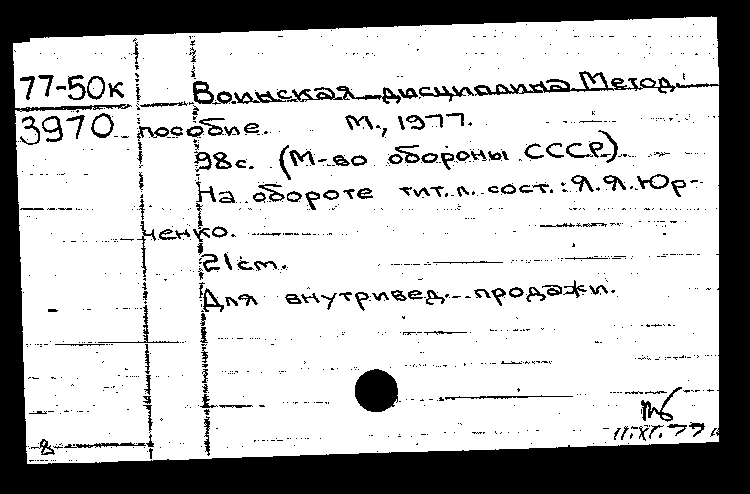 77-50к Воинская дисциплина Метод.
3970 пособие. М., 1977.
98с. (М-во обороны СССР).
На обороте тит.л. сост.: Я.Я.Юр-
ченко.
21см.
Для внутривед. продажи.
11.XI.77
8